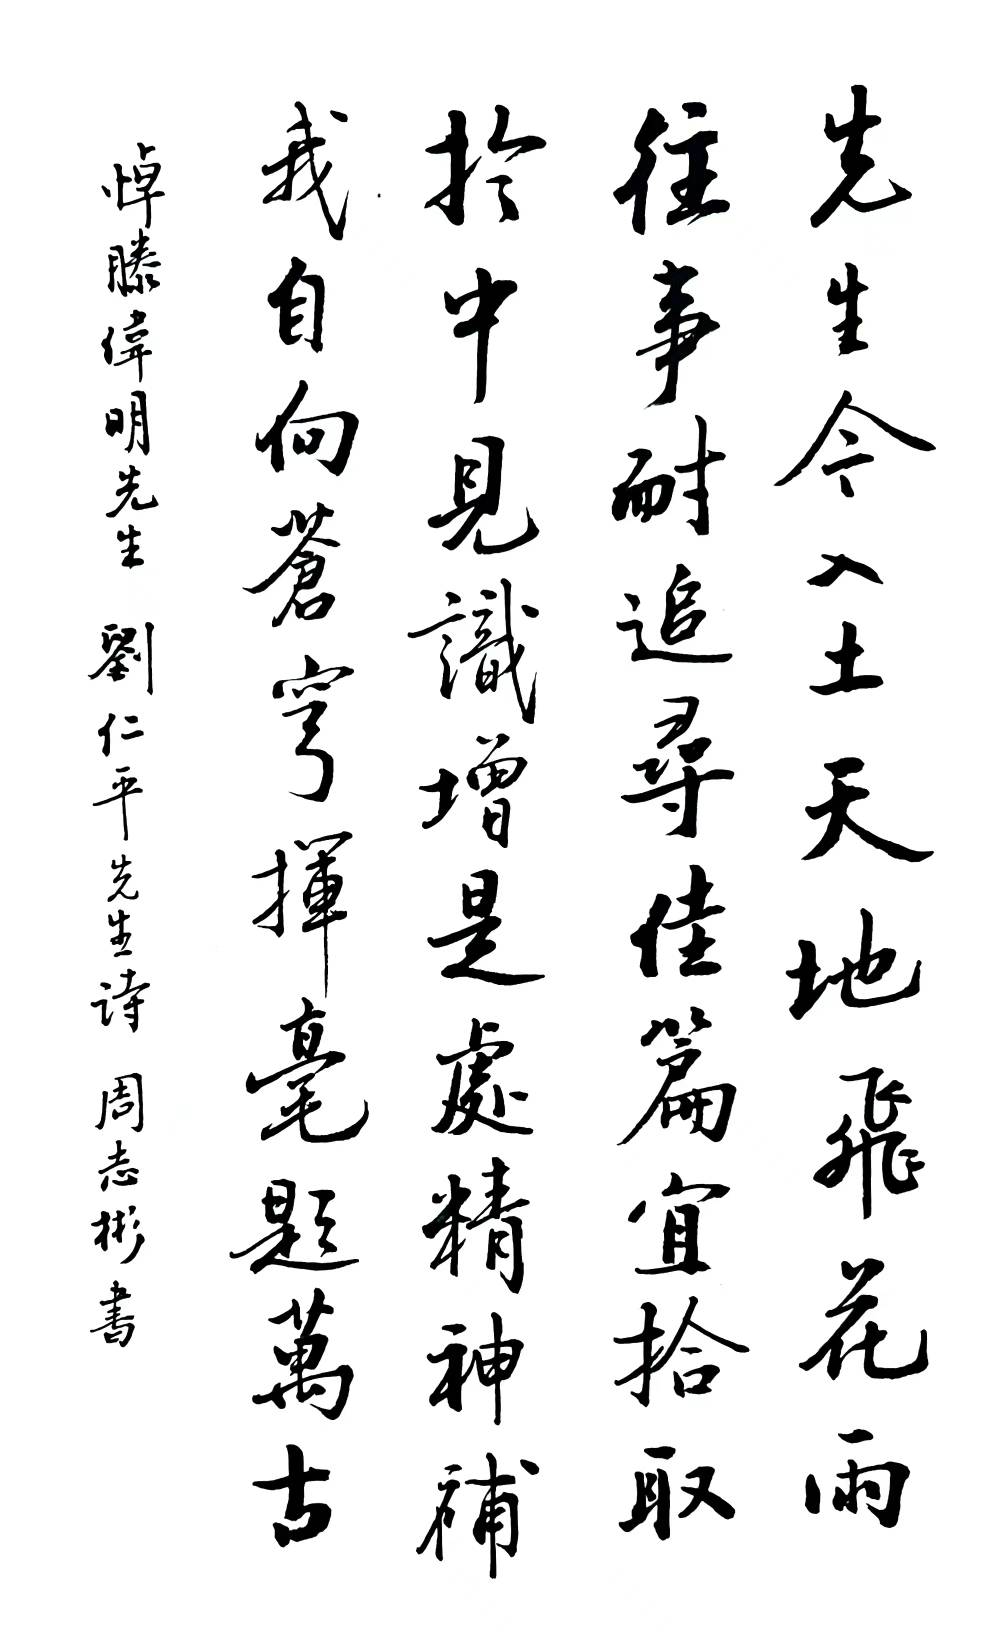 先生今入土天地飛花雨
往事耐追尋佳篇宜拾取
於中見識增是處精神補
我自向蒼穹揮毫題萬古
悼滕偉明先生 劉仁平先生詩 周志彬書